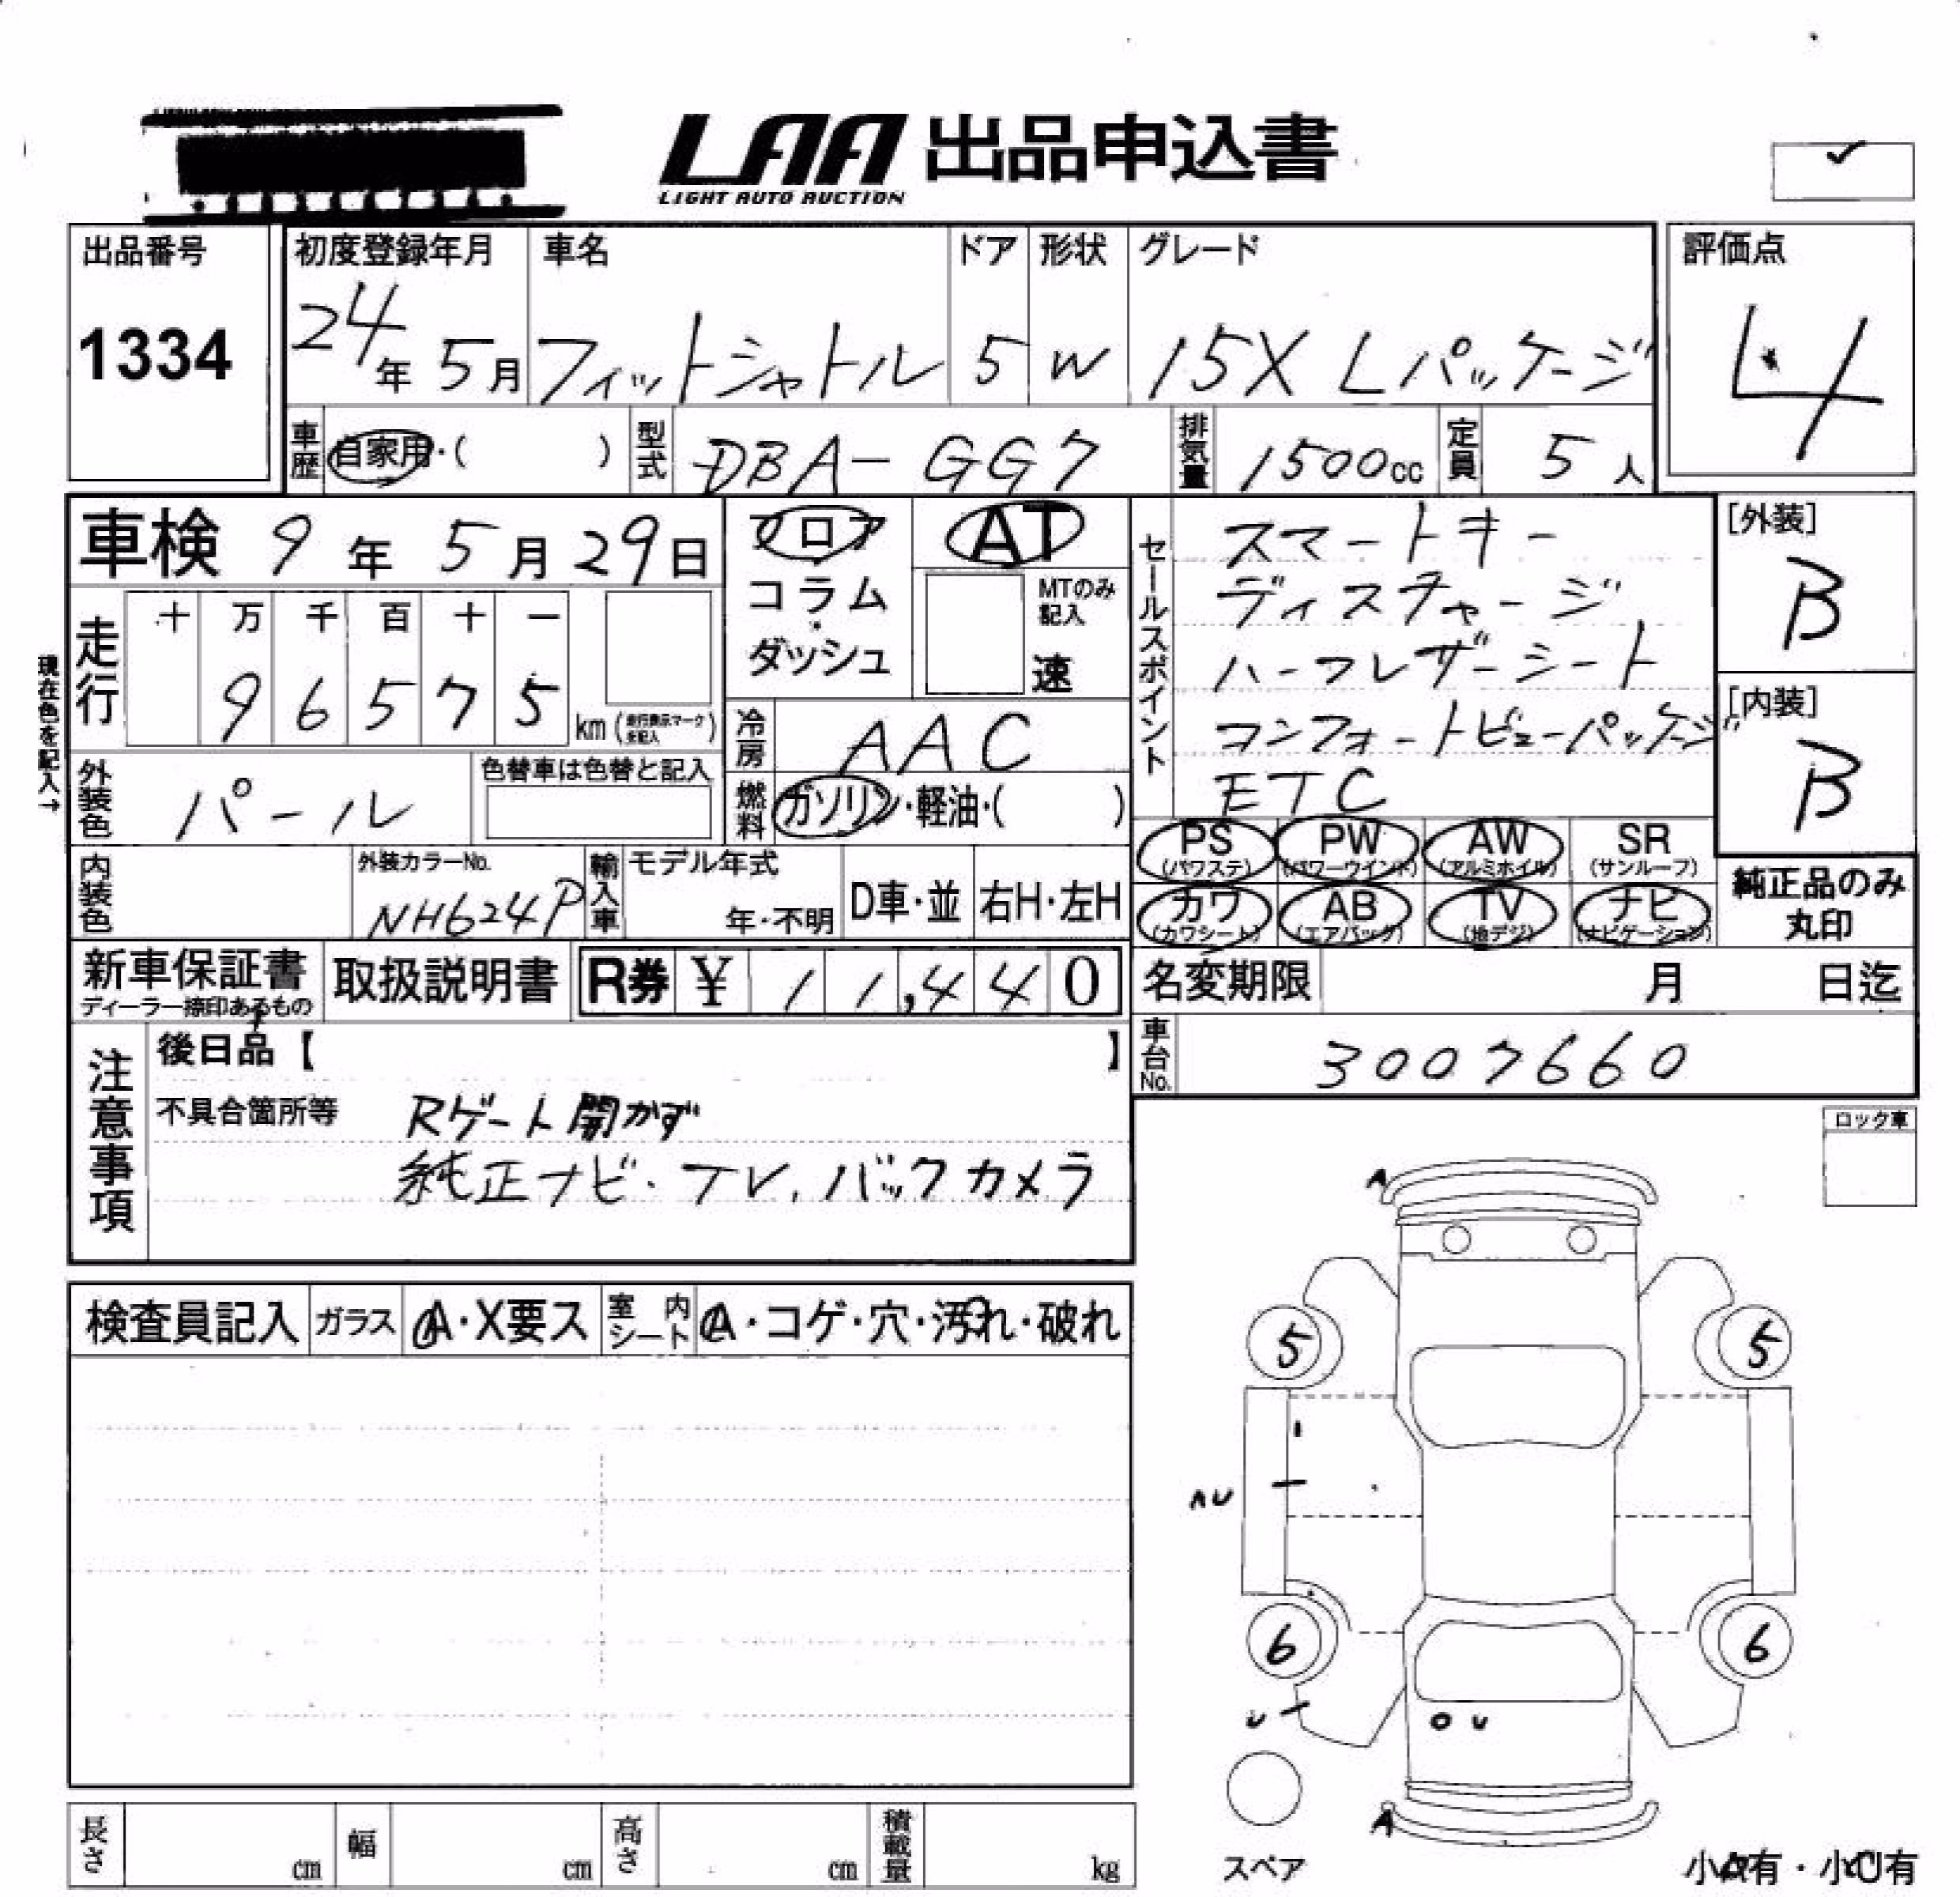 LAA 出品申込書
LIGHT AUTO AUCTION
出品番号
1334
初度登録年月
24年 5月
車名
フィットシャトル
ドア
5
形状
W
グレード
15X Lパッケージ
評価点
4
車歴 自家用・( )
型式 DBA-GG7
排気量 1500cc
定員 5人
車検 9年 5月 29日
フロア
コラム
ダッシュ
AT
MTのみ記入
速
セールスポイント
スマートキー
ディスチャージ
ハーフレザーシート
コンフォートビューパッケージ
ETC
[外装]
B
[内装]
B
現在色を記入→
走行
十 万 千 百 十 一
9 6 5 7 5
km (走行表示マーク未記入)
冷房 AAC
燃料 ガソリン・軽油・( )
外装色 パール
色替車は色替と記入
内装色
外装カラーNo.
NH624P
輸入車
モデル年式
年・不明
D車・並
右H・左H
PS (パワステ)
PW (パワーウインド)
AW (アルミホイル)
SR (サンルーフ)
カワ (カワシート)
AB (エアバック)
TV (地デジ)
ナビ (ナビゲーション)
純正品のみ
丸印
新車保証書
ディーラー捺印あるもの
取扱説明書
R券 ¥ 11,440
名変期限 月 日迄
車台No. 3007660
注意事項
後日品【 】
不具合箇所等 Rゲート開かず
純正ナビ・TV、バックカメラ
ロック車
検査員記入
ガラス A・X要ス
室内シート A・コゲ・穴・汚れ・破れ
A
5 5
AU
6 6
U
U
A
スペア
小A有・小U有
長さ cm
幅 cm
高さ cm
積載量 kg